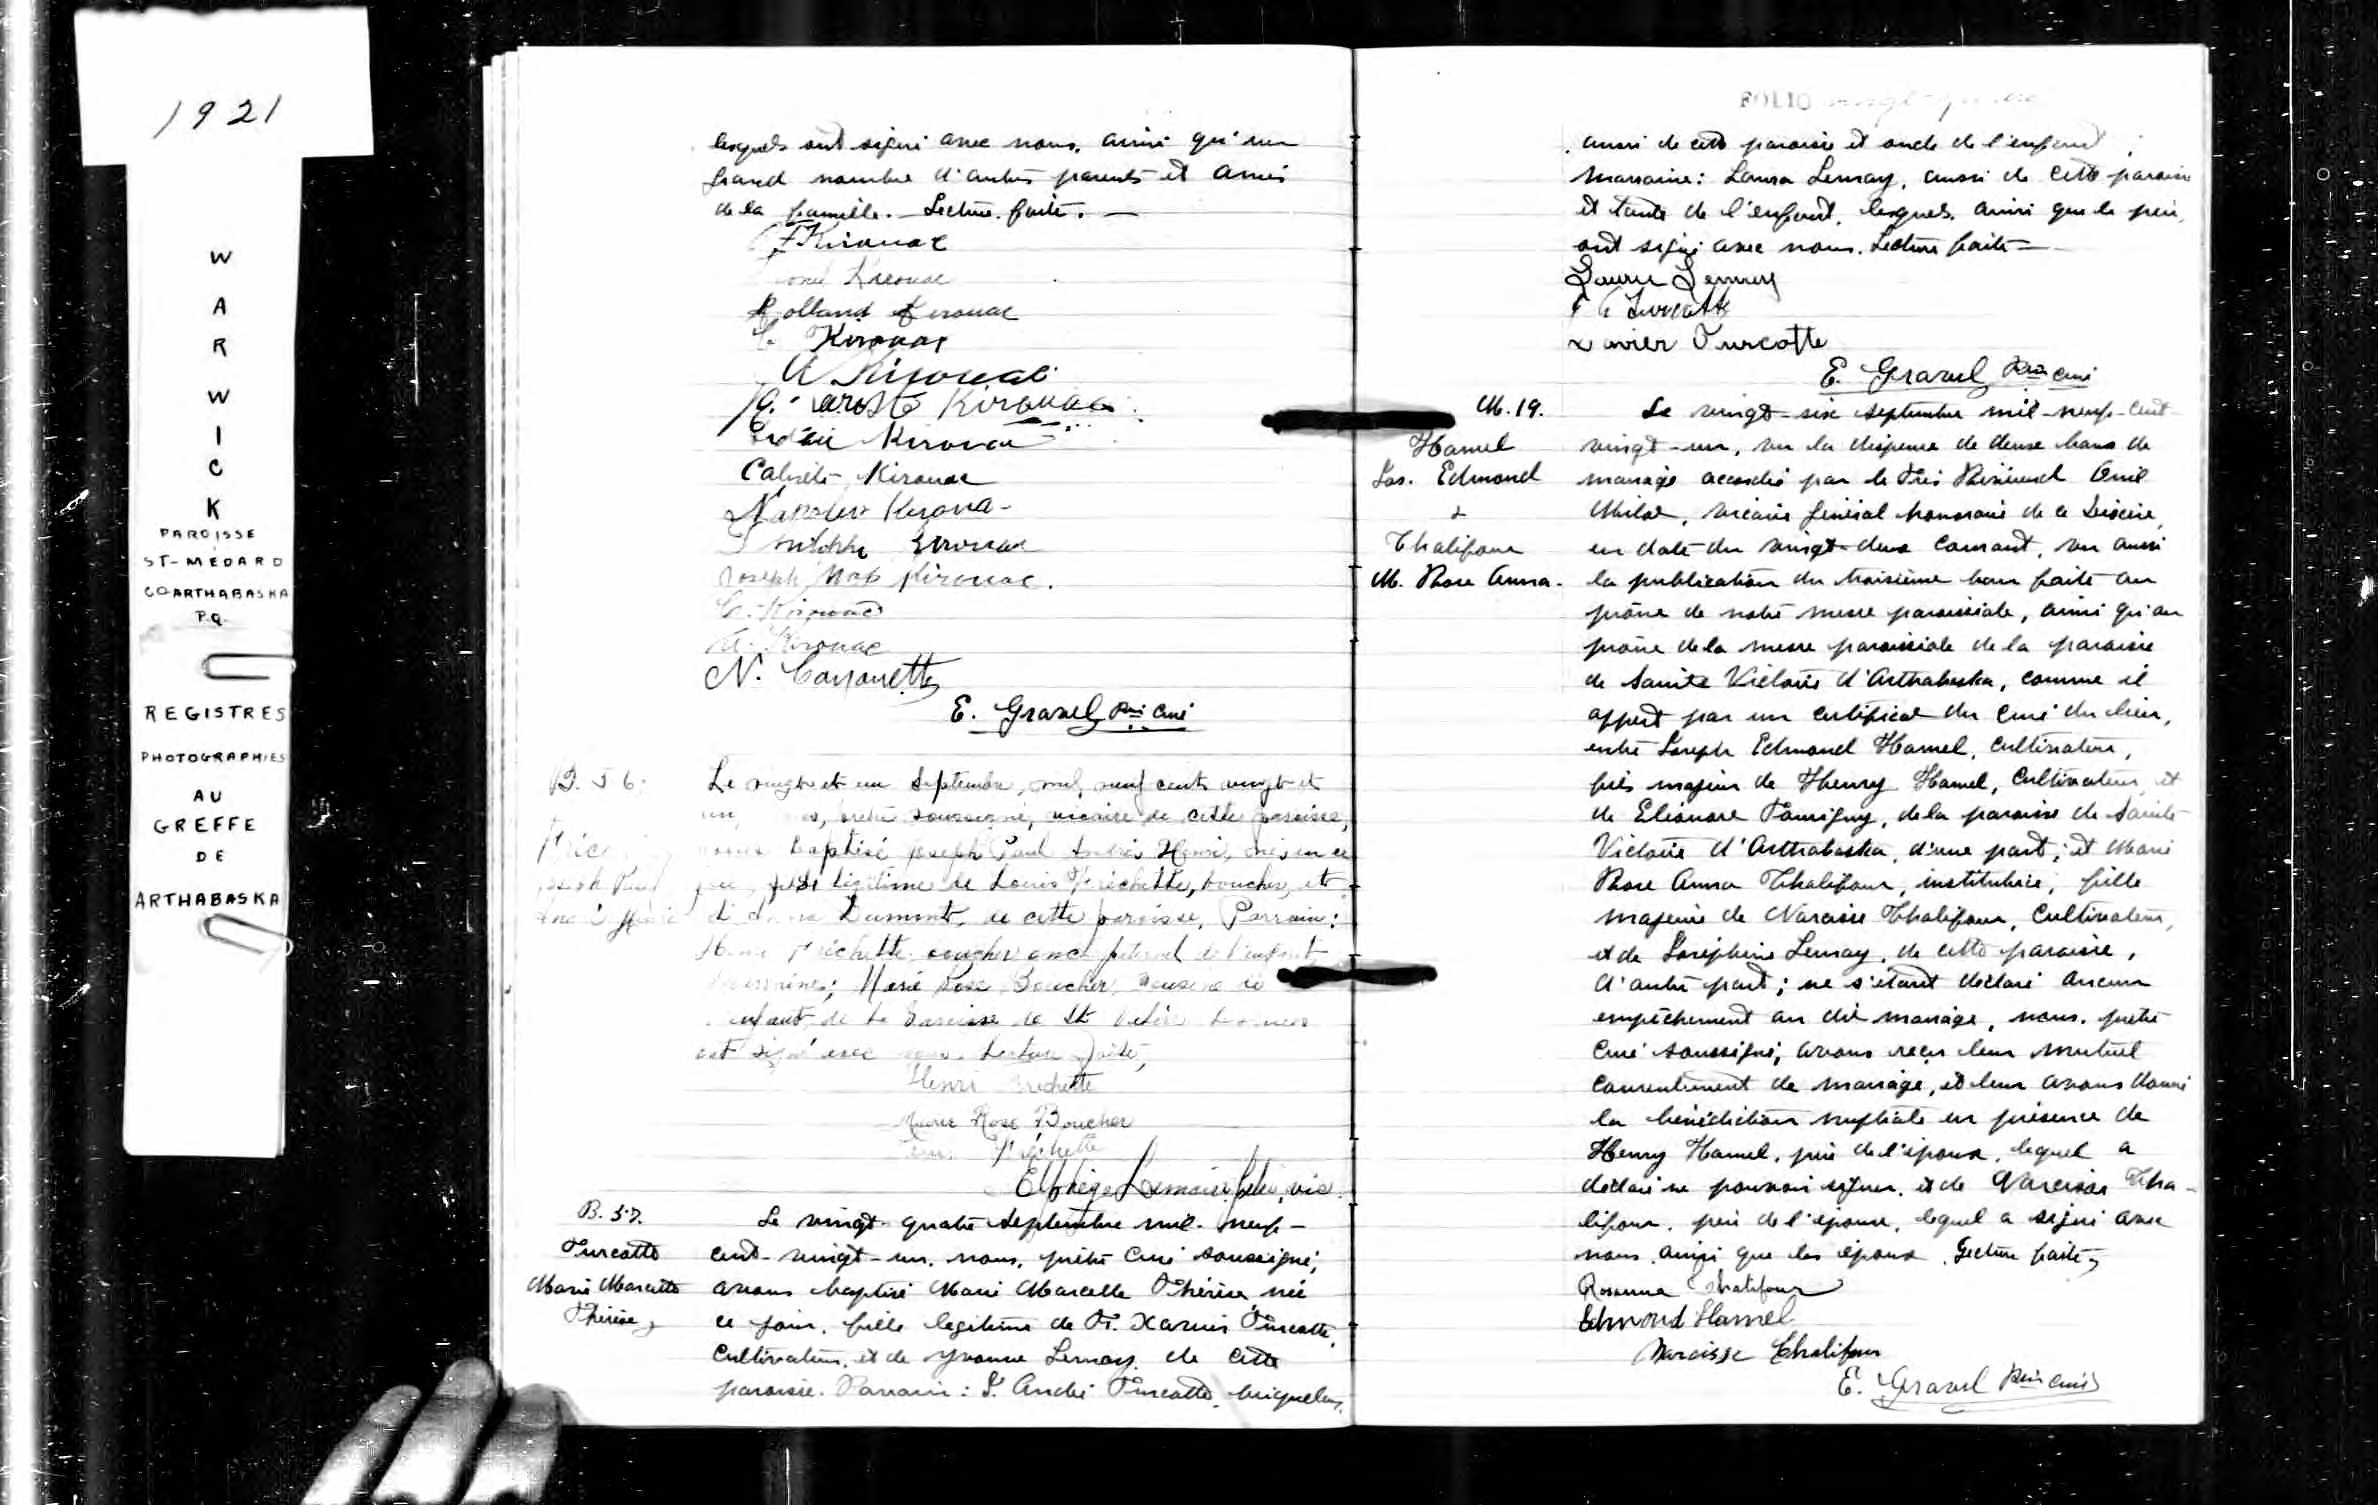 1921
WARWICK
PAROISSE
ST-MÉDARD
CO ARTHABASKA
P.Q.
REGISTRES
PHOTOGRAPHIES
AU
GREFFE
DE
ARTHABASKA
lesquels ont signé avec nous, ainsi qu'un
grand nombre d'autres parents et amis
de la famille. - Lecture faite. -
Kirouac
Kirouac
Rolland Kirouac
Kirouac
A Kirouac
Kirouac
Kirouac
Kirouac
Napoléon Kirouac
Kirouac
Joseph Nap Kirouac.
Kirouac
A. Kirouac
N.
E. Gravel Ptre Curé
B. 56.
Le vingt et un Septembre, mil neuf cent vingt et
un, prêtre soussigné, vicaire de cette paroisse,
avons baptisé Joseph Paul André Henri, né en ce
jour, fils légitime de Louis Fréchette, boucher, et
d' Dumont, de cette paroisse. Parrain:
Henri Fréchette, boucher, oncle paternel de l'enfant
Marraine; Marie Rose Boucher, cousine de
l'enfant, de la Paroisse de St
ont signé avec nous. Lecture faite,
Henri Fréchette
Marie Rose Boucher
Fréchette
Elphège Lemaire, ptre, vic.
B. 57.
Turcotte
Marie Marcelle
Thérèse
Le vingt-quatre septembre mil-neuf-
cent-vingt-un, nous, prêtre curé soussigné,
avons baptisé Marie Marcelle Thérèse, née
ce jour, fille légitime de F. Xavier Turcotte,
cultivateur, et de Yvonne Lemay, de cette
paroisse. Parrain: J. André Turcotte,
FOLIO
aussi de cette paroisse et oncle de l'enfant;
Marraine: Laura Lemay, aussi de cette paroisse
et tante de l'enfant, lesquels, ainsi que le père,
ont signé avec nous. Lecture faite -
Laura Lemay
Turcotte
Xavier Turcotte
E. Gravel Ptre Curé
M. 19.
Hamel
Jos. Edmond
&
Thalifour
M. Rose Anna.
Le vingt-six septembre mil-neuf-cent
vingt-un, vu la dispense de deux bans de
mariage accordée par le Très Révérend
Milot, vicaire général honoraire de ce Diocèse,
en date du vingt-deux courant, vu aussi
la publication du troisième ban faite au
prône de notre messe paroissiale, ainsi qu'au
prône de la messe paroissiale de la paroisse
de Sainte Victoire d'Arthabaska, comme il
appert par un certificat du curé du lieu,
entre Joseph Edmond Hamel, cultivateur,
fils majeur de Henry Hamel, cultivateur, et
de Eléonore Tourigny, de la paroisse de Sainte
Victoire d'Arthabaska, d'une part; et Marie
Rose Anna Thalifour, institutrice, fille
majeure de Narcisse Thalifour, cultivateur,
et de Joséphine Lemay, de cette paroisse,
d'autre part; ne s'étant déclaré aucun
empêchement au dit mariage, nous, prêtre
curé soussigné, avons reçu leur mutuel
consentement de mariage, et leur avons donné
la bénédiction nuptiale en présence de
Henry Hamel, père de l'époux, lequel a
déclaré ne pouvoir signer, et de Narcisse Tha-
lifour, père de l'épouse, lequel a signé avec
nous, ainsi que les époux. Lecture faite,
Rosanna Thalifour
Edmond Hamel
Narcisse Thalifour
E. Gravel Ptre Curé